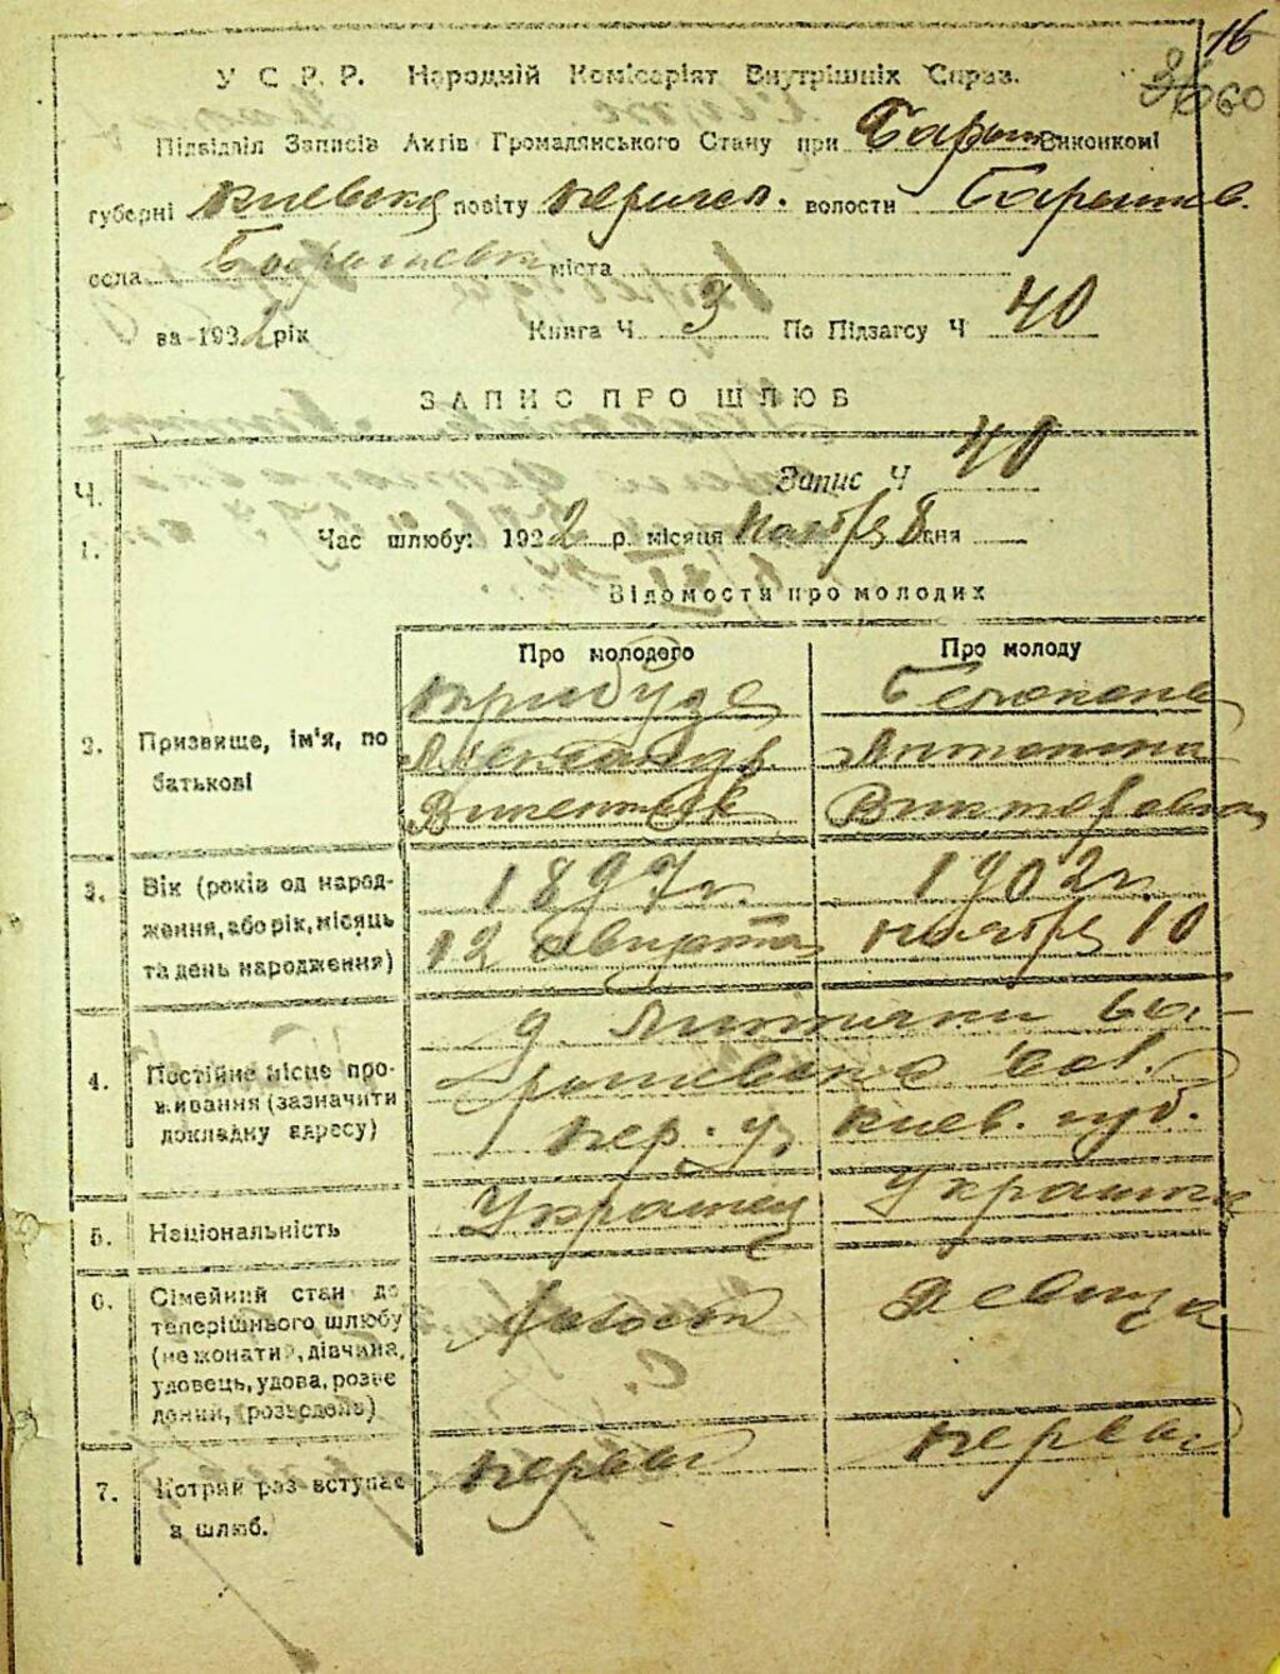 16
3660
У С Р Р. Народній Комісаріят Внутрішніх Справ.
Підвідділ Записів Актів Громадянського Стану при Бариш Виконкомі
губерні Киевская повіту Переясл. волости Барышев.
села міста
за 1922 рік Книга Ч 3 По Підзагсу Ч 40
ЗАПИС ПРО ШЛЮБ
Запис Ч 40
Ч.
1. Час шлюбу: 1922 р. місяця Ноября 8 дня
Відомости про молодих
Про молодого Про молоду
2. Призвище, ім'я, по батькові
Александр. Антонина
Викентьев Викторовна
3. Вік (років од народ-
ження, або рік, місяць
та день народження)
1897 г. 1902 г.
12 Августа ноября 10
4. Постійне місце про-
живання (зазначити
докладну адресу)
д. Ба-
рышевской вол.
пер. у. киев. губ.
5. Національність Украинец Украинка
6. Сімейний стан до
теперішнього шлюбу
(нежонатий, дівчина,
удовець, удова, розве
дений, розведена)
Холост Девица
7. Котрий раз вступає
в шлюб.
первый первый